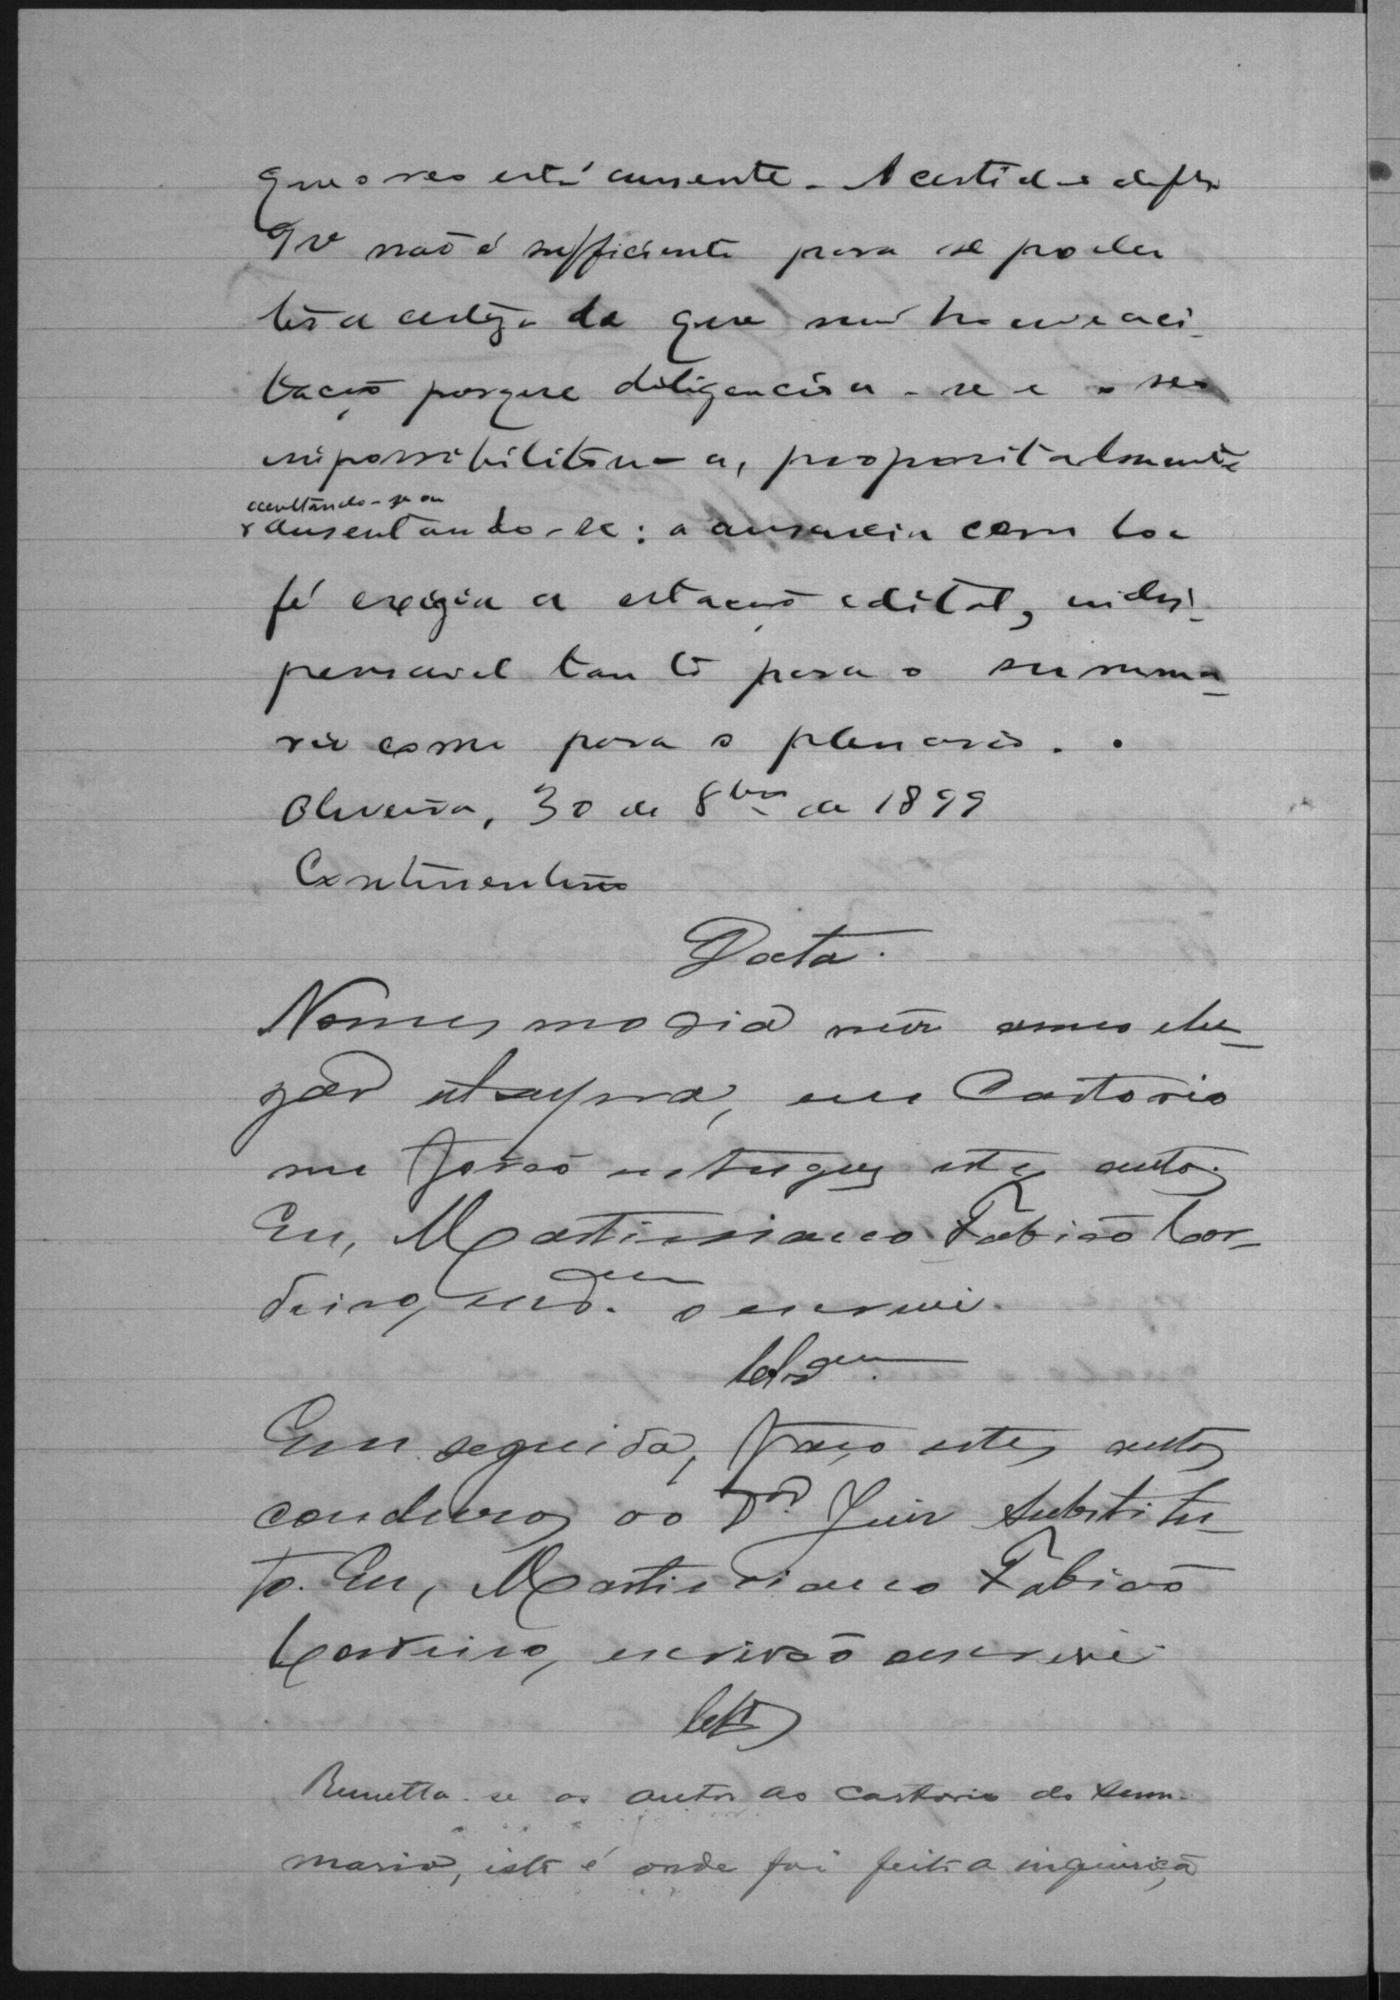 que o reo está ausente. A certidão de fls
9 v não é sufficiente para se poder
ter a certeza de que não houve a ci-
tação porque diligenciou-se e o reo
impossibilitou-a, propositalmente
occultando-se ou
ausentando-se: a ausencia com boa
fé exigia a citação edital, indis-
pensavel tanto para o summa-
rio como para o plenario.
Oliveira, 30 de 8bro de 1899
Continentino
Data.
No mesmo dia mez anno e lu-
gar, em Cartorio
me forão entregues estes autos.
Eu, Martiniano Fabião Cor-
deiro, o escrevi.
Clsam.
Em seguida, faço estes autos
conclusos ao Dr. Juiz Substitu-
to. Eu, Martiniano Fabião
Cordeiro, escrivão escrevi
Cls
Remetta-se os autos ao cartorio do sum-
mario, isto é onde foi feita a inquiriçã